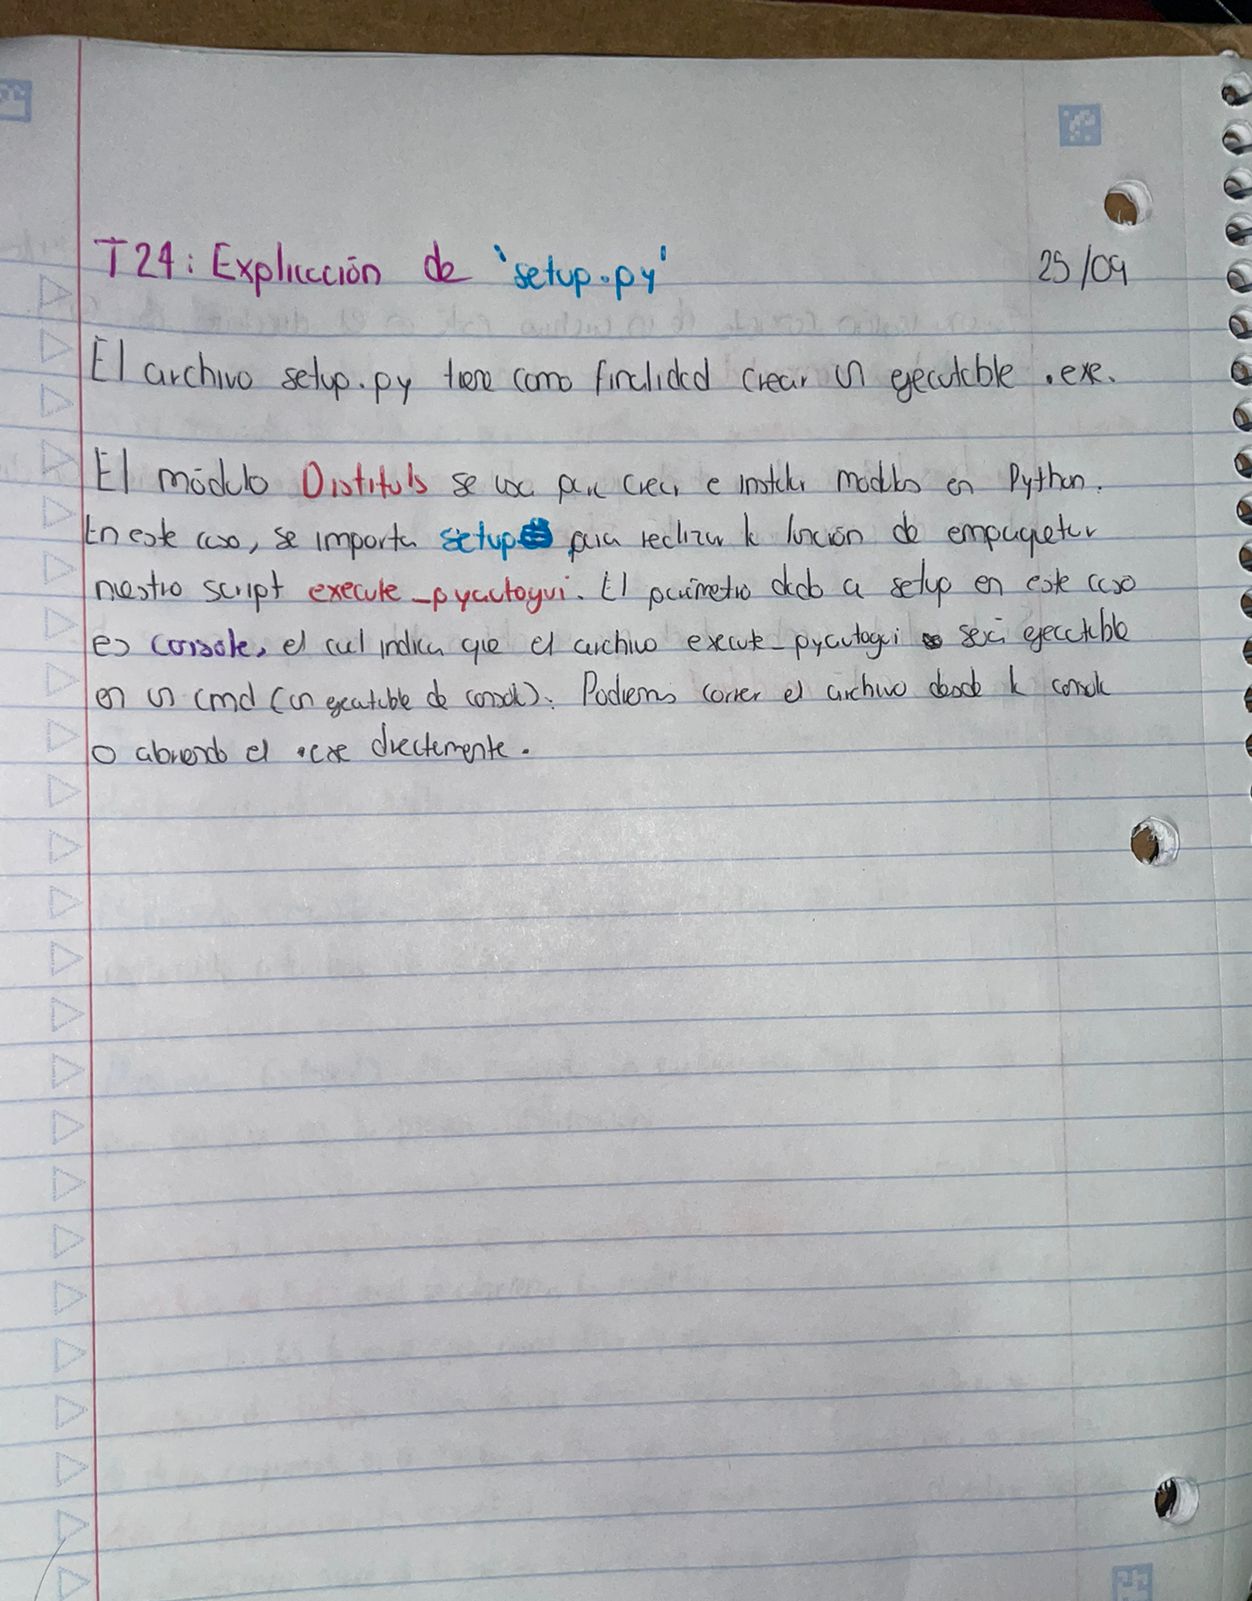 T24: Explicación de 'setup.py' 25/09
El archivo setup.py tiene como finalidad crear un ejecutable .exe.
El módulo Distituls se usa para crear e instalar modulos en Python.
En este caso, se importa setup para realizar la función de empaquetar
nuestro script execute_pyautogui. El parámetro dado a setup en este caso
es console, el cual indica que el archivo execute_pyautogui será ejecutable
en un cmd (un ejecutable de consola). Podremos correr el archivo desde la consola
o abriendo el .exe directamente.